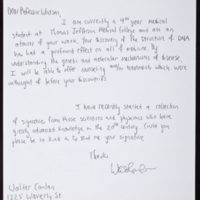 Dear Professor Watson,
I am currently a 4th year medical
student at Thomas Jefferson Medical College and am an
admirer of your work. Your discovery of the structure of DNA
has had a profound effect on all of medicine. By
understanding the genetic and molecular mechanisms of disease,
I will be able to offer counseling and/or treatments which were
unthought of before your discoveries.
I have recently started a collection
of signatures from those scientists and physicians who have
greatly advanced knowledge in the 20th century. Could you
please be so kind as to send me your signature.
Thanks
Walter Conlan
1225 Waverly St